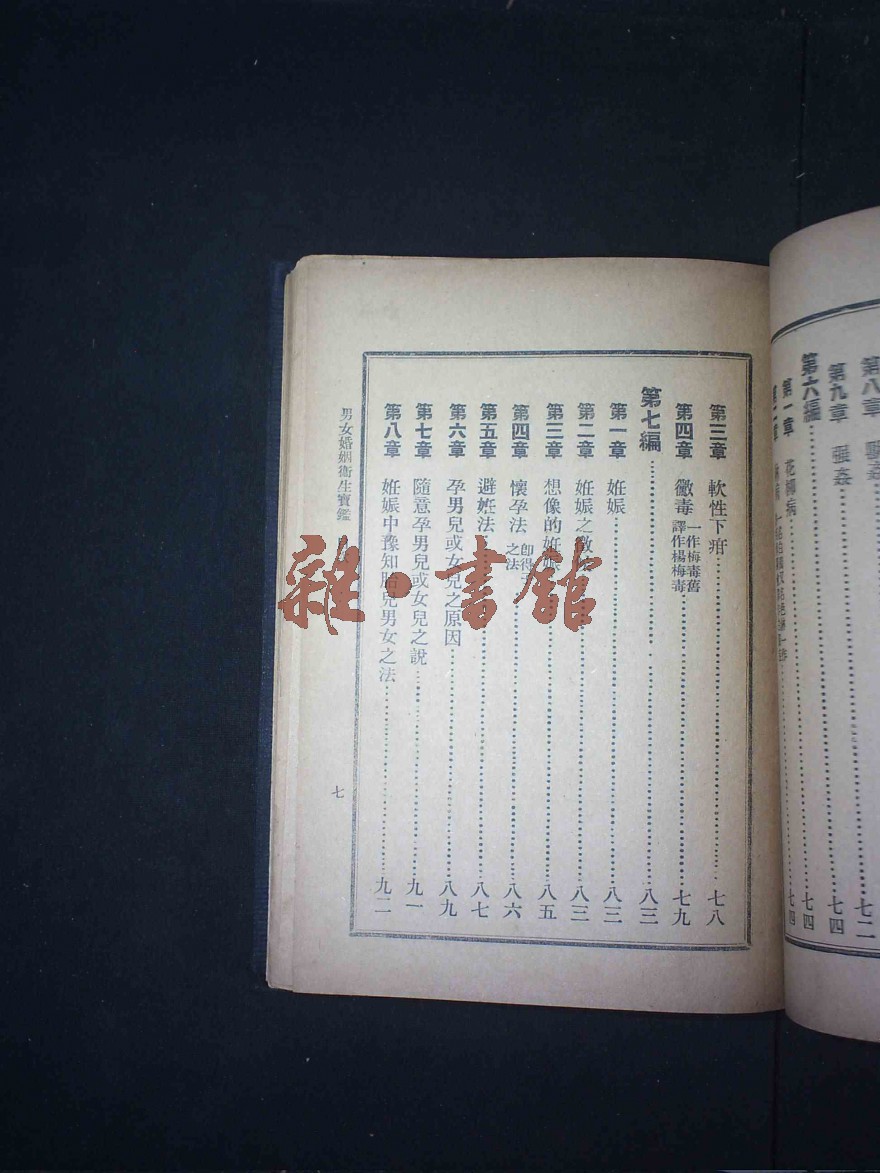 第八章
第九章 強姦
七四
第六編
七四
第一章 花柳病
七四
第三章 軟性下疳 七八
第四章 黴毒 一作梅毒舊譯作楊梅毒 七九
第七編 八三
第一章 妊娠 八三
第二章 妊娠之徵 八三
第三章 想像的妊娠 八五
第四章 懷孕法 卽得 之法 八六
第五章 避妊法 八七
第六章 孕男兒或女兒之原因 八九
第七章 隨意孕男兒或女兒之說 九一
第八章 妊娠中豫知胎兒男女之法 九二
男女婚姻衞生寶鑑
七
雜·書館